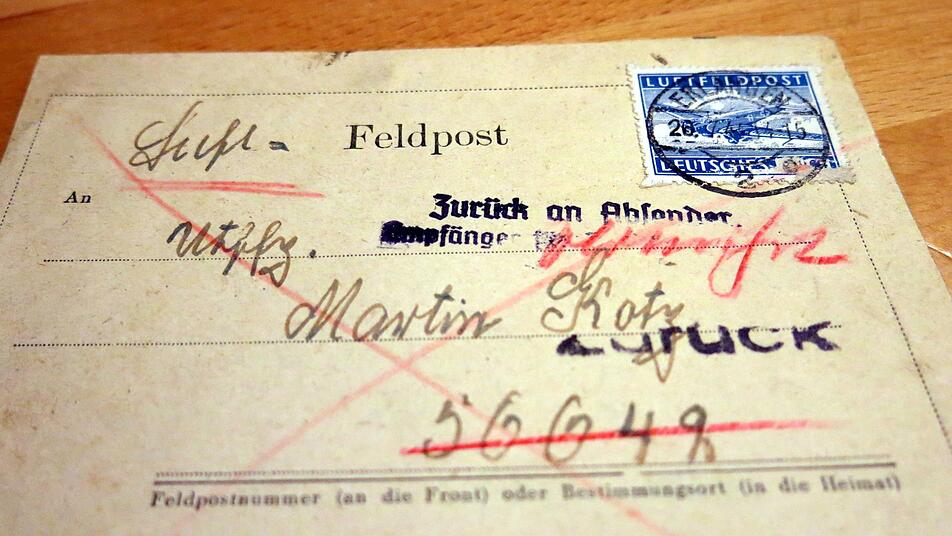 LUFTFELDPOST
ERLANGEN
DEUTSCHES
Luft-
Feldpost
An
Zurück an Absender,
Empfänger
vermißt
Uffz.
Martin Kotz
Zurück
56648
Feldpostnummer (an die Front) oder Bestimmungsort (in die Heimat)